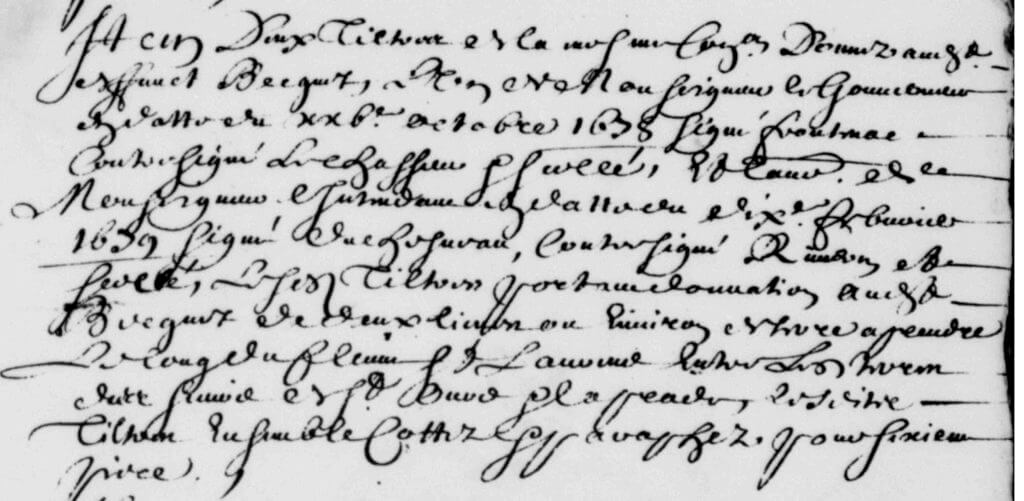 Item Deux Tiltres de la mesme Con.on Donnez aud.
deffunct Becquet, L'un de Monseigneur le Gouverneur
en datte du xxbe. octobre 1678 signé frontenac
Contresigné Lechasseur & scellé, Et l'autre de
Monseigneur l'Intendant en datte du dixe. febvrier
1679 signé duchesneau, Contresigné et
scellé, Lesd. Tiltres portant donnation aud.
Becquet de deux lieues ou Environ de terre a prendre
Le long du fleuve St Laurens Entre Les terres
du sr et lesdits
Tiltres Ensemble Cottez & paraphez. pour sixieme
piece.